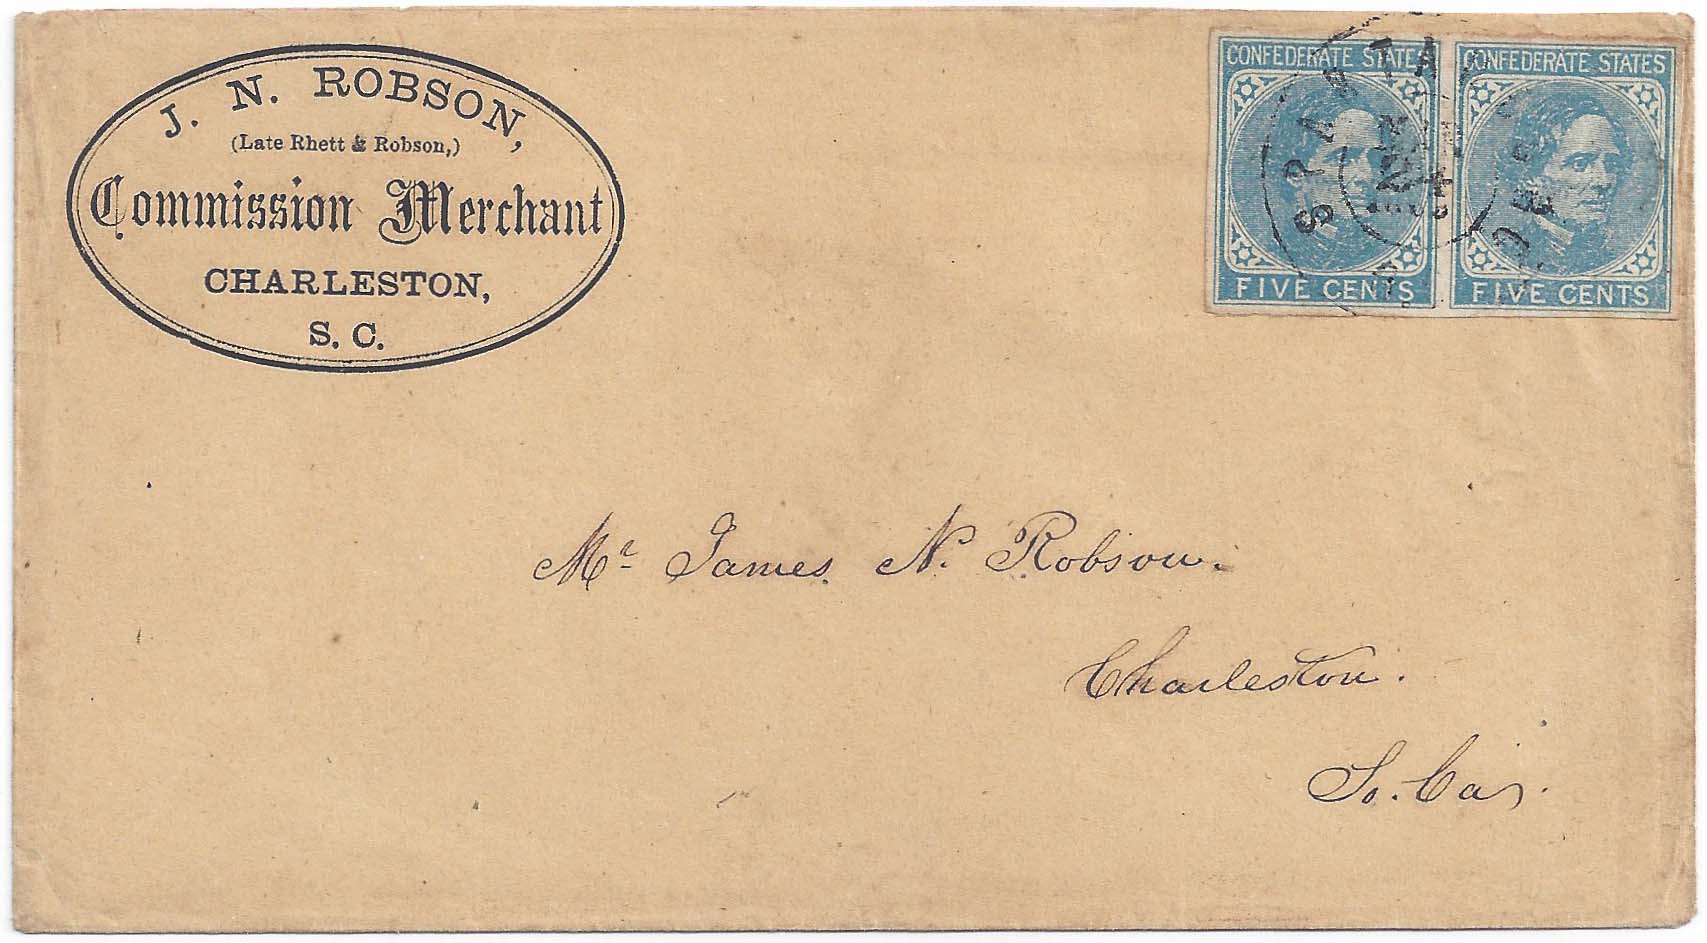 J. N. ROBSON,
(Late Rhett & Robson,)
Commission Merchant
CHARLESTON,
S. C.
CONFEDERATE STATES
FIVE CENTS
CONFEDERATE STATES
FIVE CENTS
SPARTA
Mr James N. Robson.
Charleston.
So. Car.